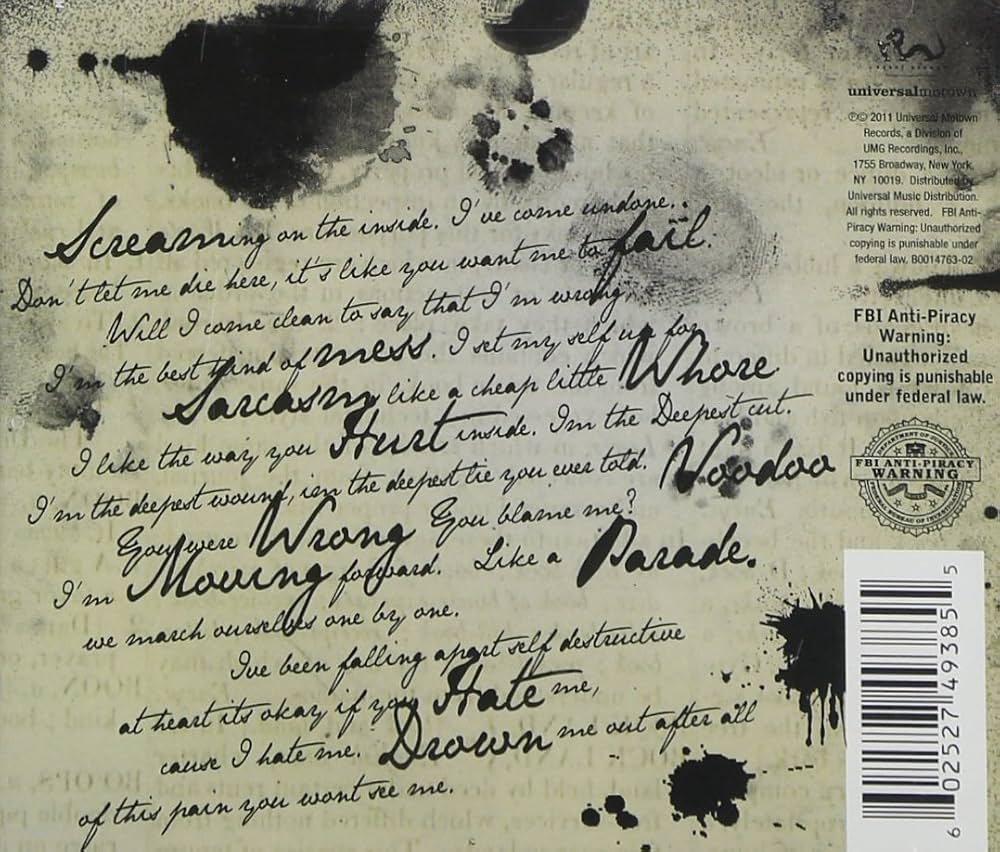 Screaming on the inside. I've come undone..
Don't let me die here, it's like you want me to fail.
Will I come clean to say that I'm wrong,
I'm the best kind of mess. I set my self up for
Sarcasm like a cheap little Whore
I like the way you Hurt inside. Im the Deepest cut.
I'm the deepest wound, im the deepest lie you ever told. Voodoo
You were Wrong You blame me?
I'm Moving forward. Like a Parade.
we march ourselves one by one.
Ive been falling apart self destructive
at heart its okay if you Hate me,
cause I hate me. Drown me out after all
of this pain you wont see me.
universalmotown
℗© 2011 Universal Motown
Records, a Division of
UMG Recordings, Inc.,
1755 Broadway, New York,
NY 10019. Distributed by
Universal Music Distribution.
All rights reserved. FBI Anti-
Piracy Warning: Unauthorized
copying is punishable under
federal law. B0014763-02
FBI Anti-Piracy
Warning:
Unauthorized
copying is punishable
under federal law.
DEPARTMENT OF JUSTICE
FBI ANTI-PIRACY
WARNING
FEDERAL BUREAU OF INVESTIGATION
6 02527 49385 5